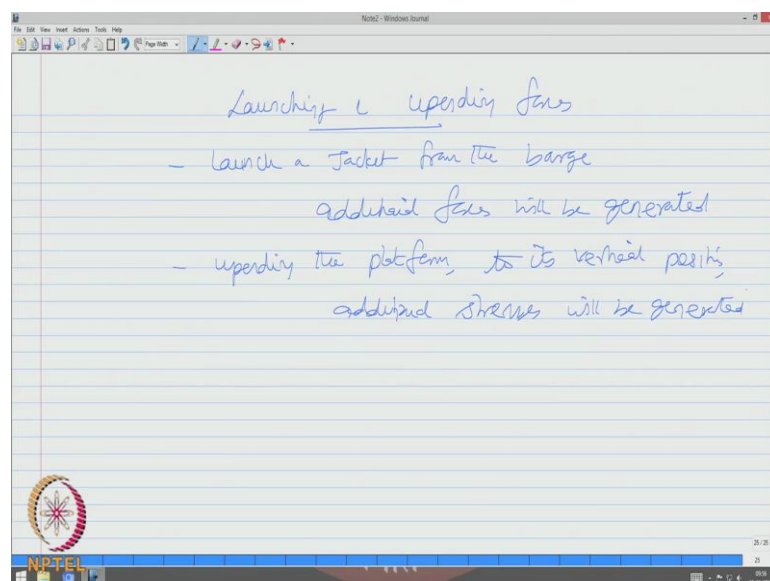 Note2 - Windows Journal
File Edit View Insert Actions Tools Help
Page Width
Launching & upending forces
- Launch a Jacket from the barge
additional forces will be generated
- upending the platform, to its vertical position,
additional stresses will be generated
25 / 25
25
NPTEL
09:56